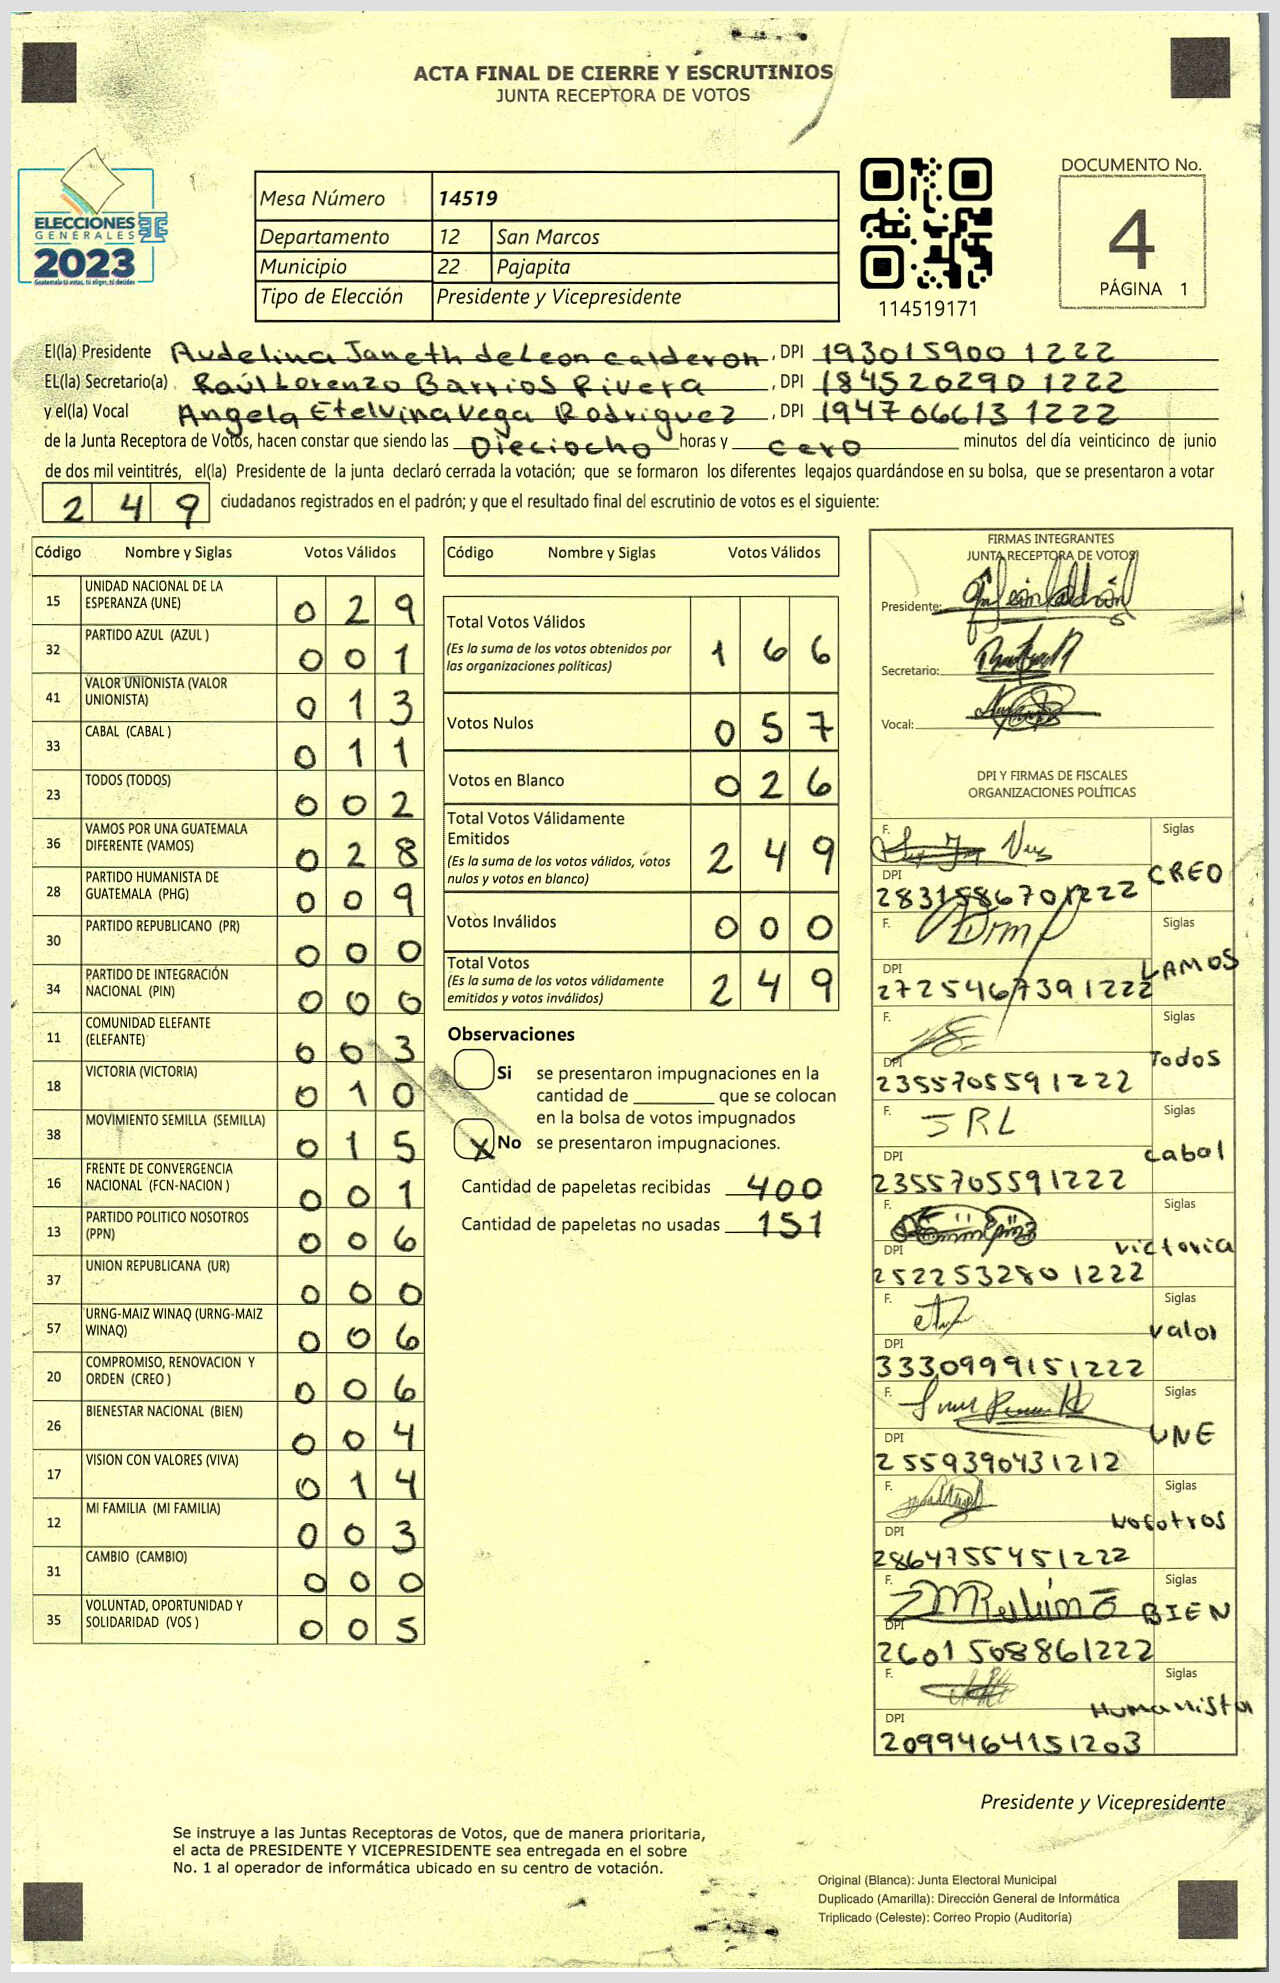 ACTA FINAL DE CIERRE Y ESCRUTINIOS
JUNTA RECEPTORA DE VOTOS
ELECCIONES
GENERALES
2023
Guatemala tú votas, tú eliges, tú decides
Mesa Número 14519
Departamento 12 San Marcos
Municipio 22 Pajapita
Tipo de Elección Presidente y Vicepresidente
114519171
DOCUMENTO No.
4
PÁGINA 1
El(la) Presidente Audelina Janeth deLeon Calderon, DPI 193015900 1222
EL(la) Secretario(a) Raúl Lorenzo Barrios Rivera, DPI 184520290 1222
y el(la) Vocal Angela Etelvina Vega Rodriguez, DPI 194706613 1222
de la Junta Receptora de Votos, hacen constar que siendo las Dieciocho horas y cero minutos del día veinticinco de junio
de dos mil veintitrés, el(la) Presidente de la junta declaró cerrada la votación; que se formaron los diferentes legajos guardándose en su bolsa, que se presentaron a votar
249 ciudadanos registrados en el padrón; y que el resultado final del escrutinio de votos es el siguiente:
Código Nombre y Siglas Votos Válidos
15 UNIDAD NACIONAL DE LA ESPERANZA (UNE) 029
32 PARTIDO AZUL (AZUL ) 001
41 VALOR UNIONISTA (VALOR UNIONISTA) 013
33 CABAL (CABAL ) 011
23 TODOS (TODOS) 002
36 VAMOS POR UNA GUATEMALA DIFERENTE (VAMOS) 028
28 PARTIDO HUMANISTA DE GUATEMALA (PHG) 009
30 PARTIDO REPUBLICANO (PR) 000
34 PARTIDO DE INTEGRACIÓN NACIONAL (PIN) 000
11 COMUNIDAD ELEFANTE (ELEFANTE) 003
18 VICTORIA (VICTORIA) 010
38 MOVIMIENTO SEMILLA (SEMILLA) 015
16 FRENTE DE CONVERGENCIA NACIONAL (FCN-NACION ) 001
13 PARTIDO POLITICO NOSOTROS (PPN) 006
37 UNION REPUBLICANA (UR) 000
57 URNG-MAIZ WINAQ (URNG-MAIZ WINAQ) 006
20 COMPROMISO, RENOVACION Y ORDEN (CREO ) 006
26 BIENESTAR NACIONAL (BIEN) 004
17 VISION CON VALORES (VIVA) 014
12 MI FAMILIA (MI FAMILIA) 003
31 CAMBIO (CAMBIO) 000
35 VOLUNTAD, OPORTUNIDAD Y SOLIDARIDAD (VOS ) 005
Código Nombre y Siglas Votos Válidos
Total Votos Válidos 166
(Es la suma de los votos obtenidos por
las organizaciones políticas)
Votos Nulos 057
Votos en Blanco 026
Total Votos Válidamente
Emitidos 249
(Es la suma de los votos válidos, votos
nulos y votos en blanco)
Votos Inválidos 000
Total Votos 249
(Es la suma de los votos válidamente
emitidos y votos inválidos)
Observaciones
Si se presentaron impugnaciones en la
cantidad de ________ que se colocan
en la bolsa de votos impugnados
X No se presentaron impugnaciones.
Cantidad de papeletas recibidas 400
Cantidad de papeletas no usadas 151
FIRMAS INTEGRANTES
JUNTA RECEPTORA DE VOTOS
Presidente:
Secretario:
Vocal:
DPI Y FIRMAS DE FISCALES
ORGANIZACIONES POLÍTICAS
F. Siglas
DPI CREO
2831586701222
F. Siglas
DPI VAMOS
2725467391222
F. Siglas
DPI Todos
2355705591222
F. JRL Siglas
DPI cabal
2355705591222
F. Siglas
DPI victoria
252253280 1222
F. Siglas
DPI valor
3330999151222
F. Siglas
DPI UNE
2559390431212
F. Siglas
DPI Nosotros
2864755451222
F. Siglas
DPI BIEN
2601508861222
F. Siglas
DPI Humanista
2099464151203
Presidente y Vicepresidente
Se instruye a las Juntas Receptoras de Votos, que de manera prioritaria,
el acta de PRESIDENTE Y VICEPRESIDENTE sea entregada en el sobre
No. 1 al operador de informática ubicado en su centro de votación.
Original (Blanca): Junta Electoral Municipal
Duplicado (Amarilla): Dirección General de Informática
Triplicado (Celeste): Correo Propio (Auditoría)